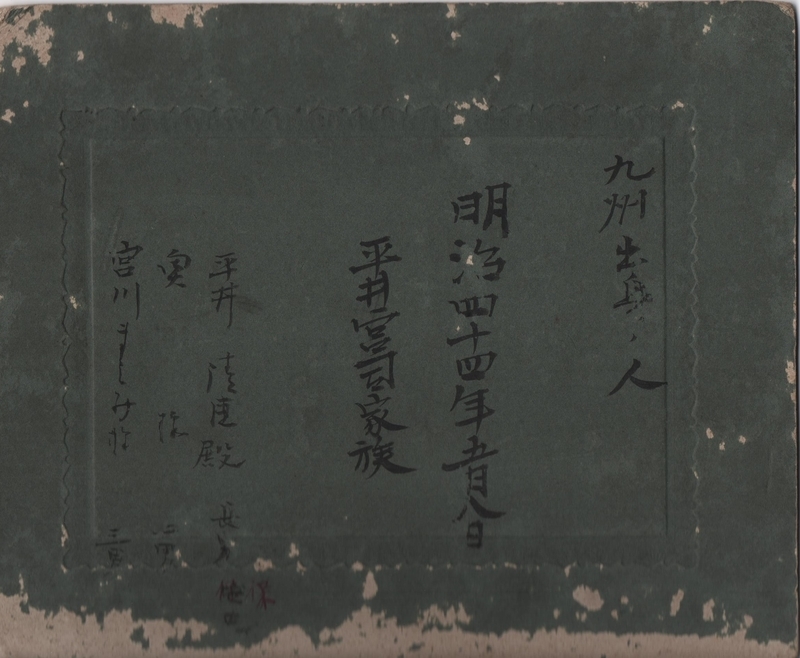 九州出身ノ人
明治四十四年五月八日
平井宮司家族
平井 清 殿 長男
奥 様 二男
宮川 様 三男